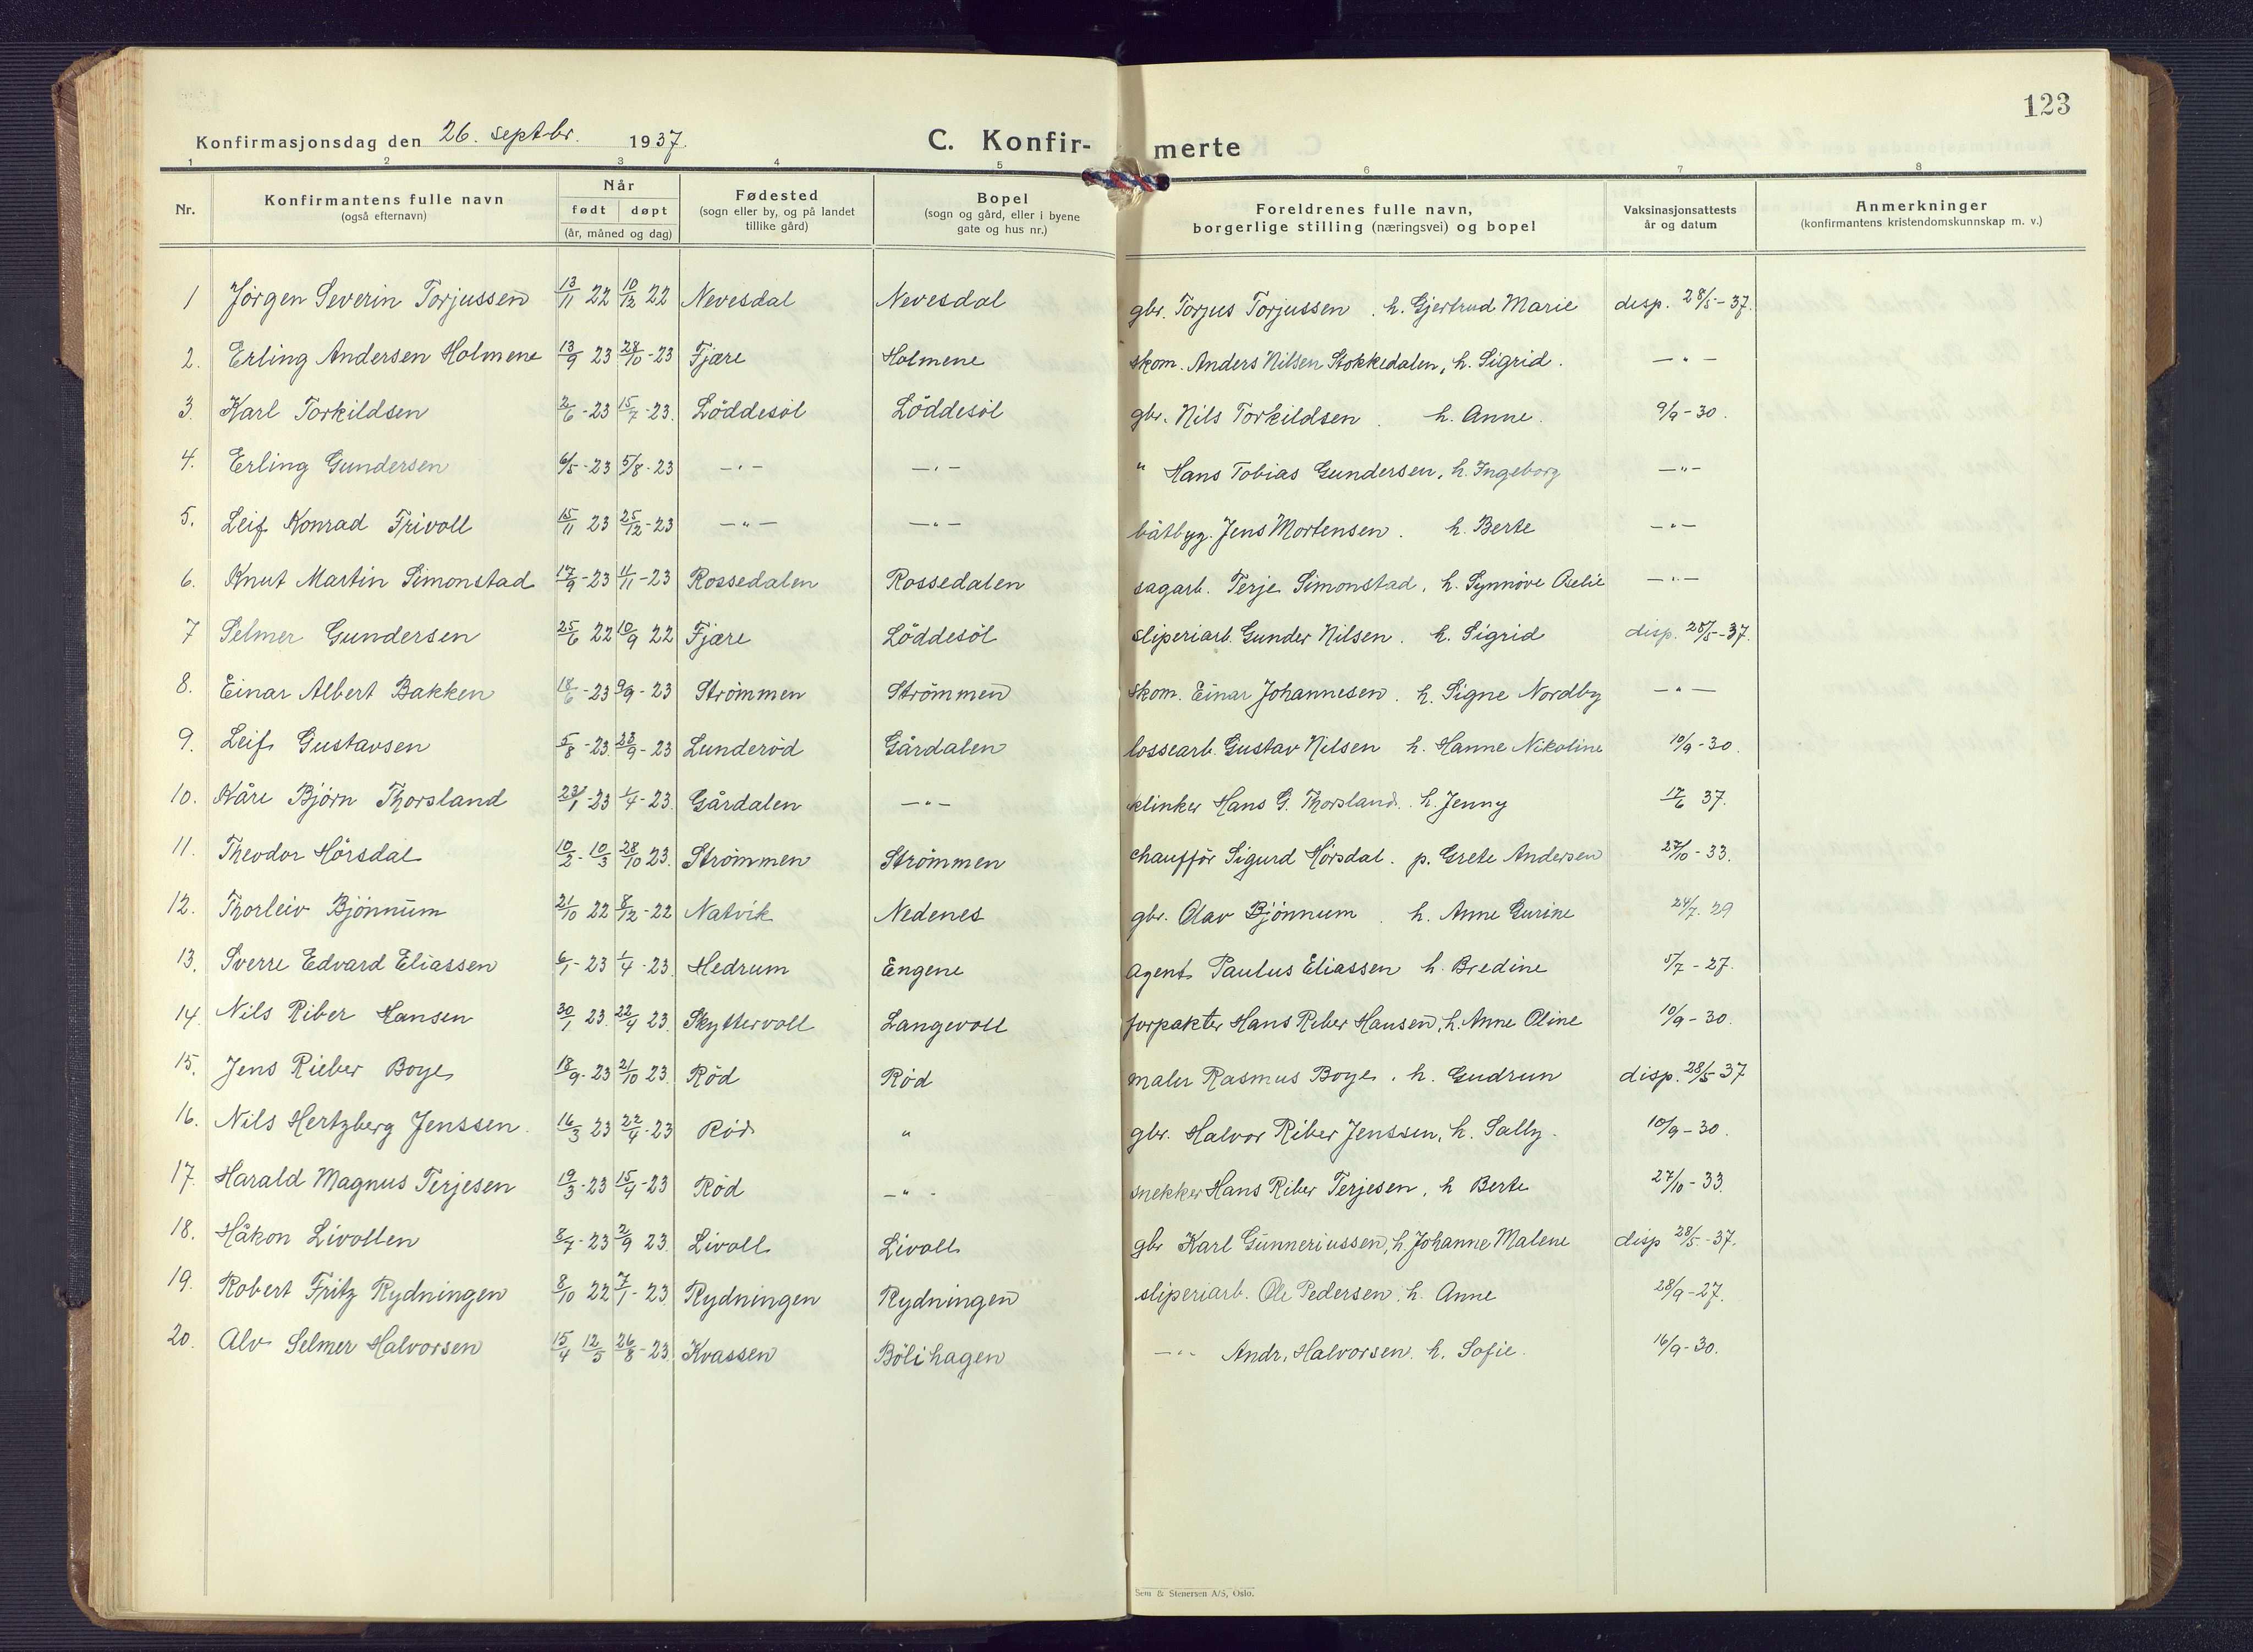 123
Konfirmasjonsdag den 26. septbr. 1937. C. Konfir- merte
1 2 3 4 5 6 7 8
Nr. Konfirmantens fulle navn (også efternavn) Når født døpt (år, måned og dag) Fødested (sogn eller by, og på landet tillike gård) Bopel (sogn og gård, eller i byene gate og hus nr.) Foreldrenes fulle navn, borgerlige stilling (næringsvei) og bopel Vaksinasjonsattests år og datum Anmerkninger (konfirmantens kristendomskunnskap m. v.)
1 Jörgen Severin Torjussen 13/11 22 10/12 22 Nevesdal Nevesdal gbr. Torjus Torjussen . h. Gjertrud Marie disp. 28/5-37.
2. Erling Andersen Holmene 13/9 23 28/10-23 Fjære Holmene skom. Anders Nilsen Stokkedalen, h. Sigrid. — " —
3. Karl Torkildsen 2/6-23 15/7-23. Löddesöl Löddesöl gbr. Nils Torkildsen . h. Anne. 9/9-30.
4. Erling Gundersen 6/5-23 5/8-23 — " — — " — " Hans Tobias Gundersen, h. Ingeborg — " —
5. Leif Konrad Frivoll 15/11 23 25/12-23 — " — — " — båtbyg. Jens Mortensen . h. Berte — " —
6. Knut Martin Simonstad 17/9-23 11/11-23 Rossedalen Rossedalen sagarb. Terje Simonstad, h. Synnöve Aselie — " —
7 Selmer Gundersen 25/6 22 10/9 22 Fjære Löddesöl sliperiarb. Gunder Nilsen. h. Sigrid disp. 28/5-37.
8. Einar Albert Bakken 18/6-23 9/9-23 Strömmen Strömmen skom. Einar Johannesen. h. Signe Nordby — " —
9. Leif Gustavsen 5/8-23. 23/9-23 Lunderöd Gårdalen lossearb. Gustav Nilsen h. Hanne Nikoline 10/9-30.
10. Kåre Bjørn Thorsland 23/1-23 1/4-23. Gårdalen — " — klinker Hans G. Thorsland. h. Jenny 17/6 37.
11. Theodor Hörsdal 10/2-10/3 28/10 23. Strömmen Strömmen chaufför Sigurd Hörsdal. p. Grete Andersen 27/10-33.
12. Thorleiv Bjönnum 21/10 22 8/12-22 Natvik Nedenes gbr. Olav Bjönnum . h. Anne Gurine 24/7. 29
13. Sverre Edvard Eliassen 6/1-23 1/4-23. Hedrum Engene Agent Paulus Eliassen h. Bredine 5/7-27.
14. Nils Riber Hansen 30/1 23. 22/4 23. Skyttervoll Langevoll forpakter Hans Riber Hansen, h. Anne Oline 10/9-30.
15. Jens Rieber Boye 18/9-23 21/10 23. Röd Röd maler Rasmus Boye. h. Gudrun disp. 28/5 37
16. Nils Hertzberg Jenssen. 16/3 23 22/4-23 Röd " gbr. Halvor Riber Jenssen, h. Sally. 10/9-30.
17. Harald Magnus Terjesen 19/3-23 15/4-23 Röd — " - snekker Hans Riber Terjesen, h Berte 27/10-33.
18. Håkon Livollen 8/7-23 2/9 23. Livoll Livoll gbr Karl Gunneriussen, h. Johanne Malene disp 28/5-37.
19. Robert Fritz Rydningen 8/10 22 7/1-23. Rydningen Rydningen sliperiarb. Ole Pedersen. h. Anne 28/9-27.
20. Alv Selmer Halvorsen 15/4 12/5 26/8-23. Kvassen Bölihagen — " - Andr. Halvorsen. h. Sofie. 16/9-30.
Sem & Stenersen A/S, Oslo.